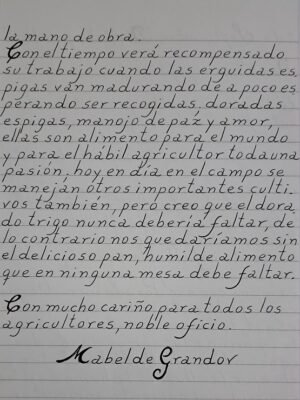 la mano de obra.
Con el tiempo verá recompensado
su trabajo cuando las erguidas es
pigas van madurando de a poco es
perando ser recogidas, doradas
espigas, manojo de paz y amor,
ellas son alimento para el mundo
y para el hábil agricultor toda una
pasión, hoy en día en el campo se
manejan otros importantes culti.
vos también, pero creo que el dora
do trigo nunca debería faltar, de
lo contrario nos quedaríamos sin
el delicioso pan, humilde alimento
que en ninguna mesa debe faltar.
Con mucho cariño para todos los
agricultores, noble oficio.
Mabel de Grandov